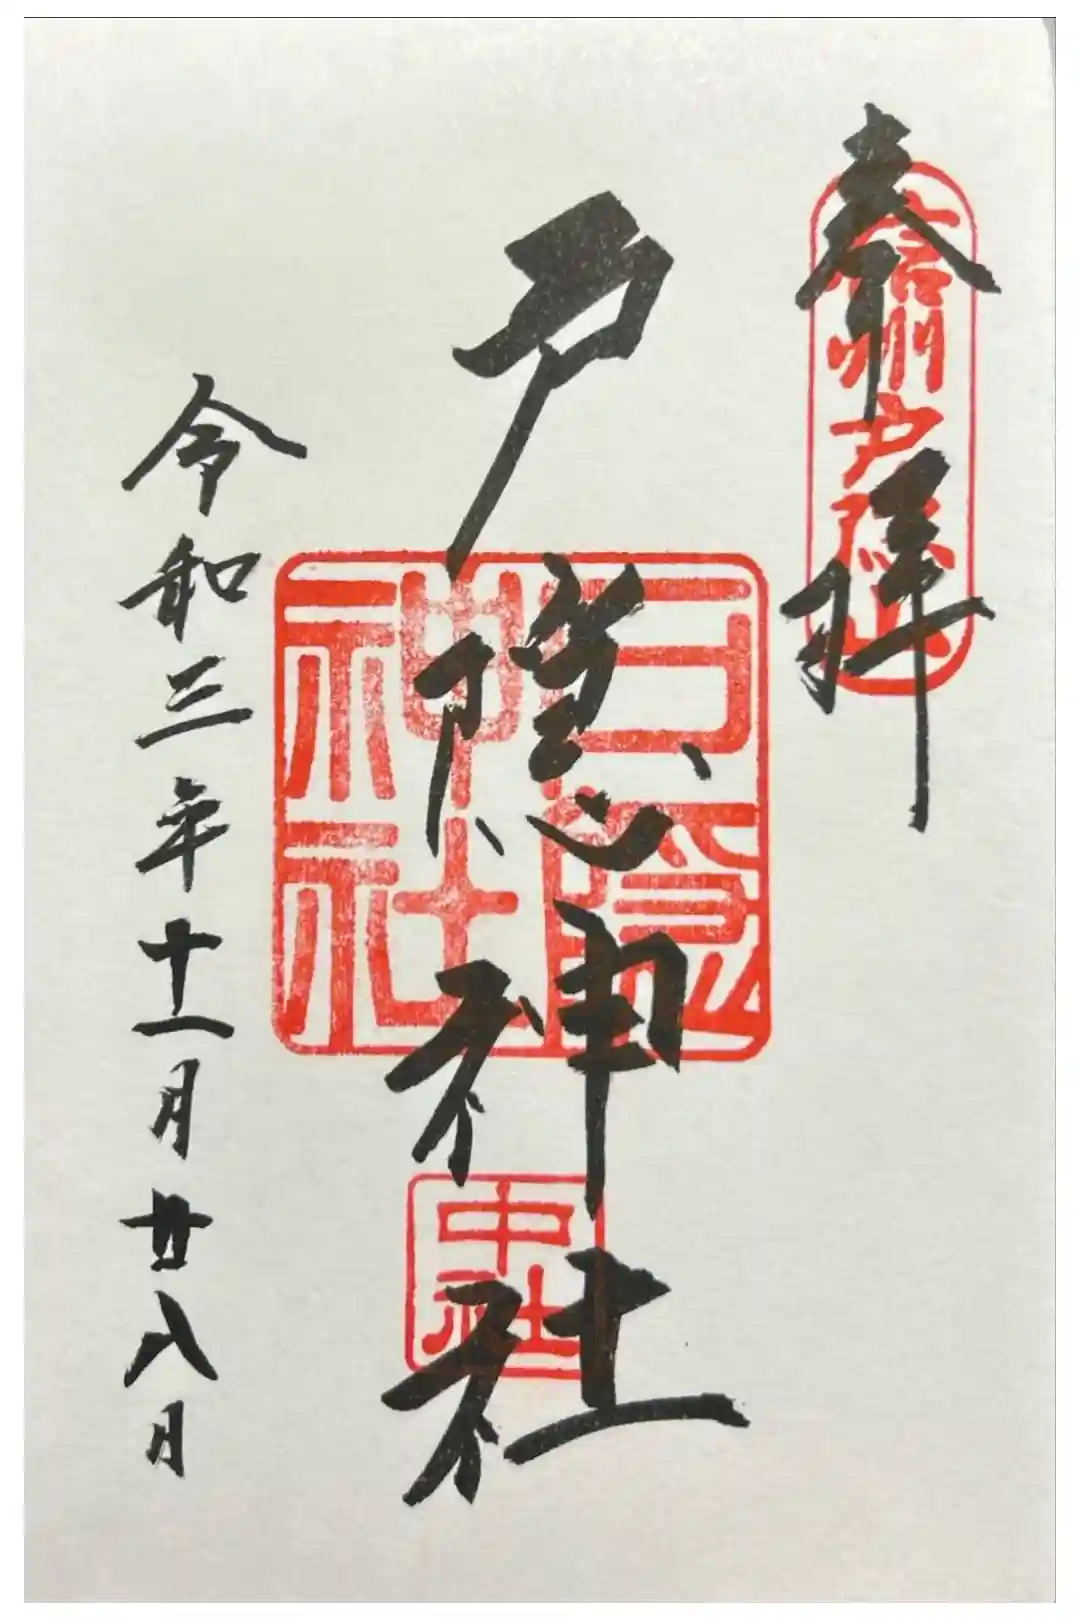 奉拝
信州戸隠山
戸隠神社
戸隠神社
中社
令和三年十一月廿八日